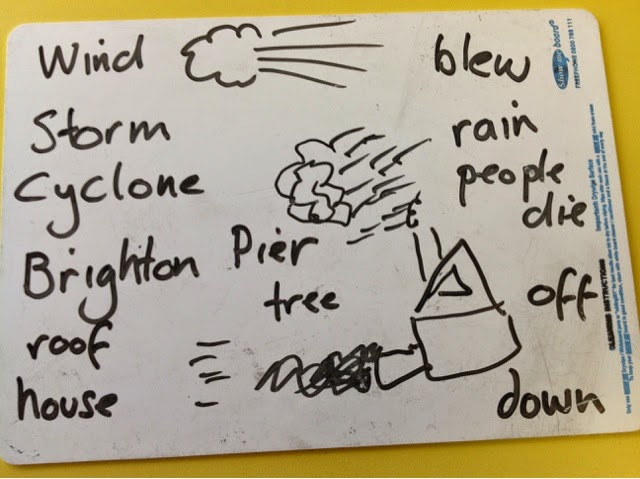 Wind
blew
Storm
rain
Cyclone
people
die
Brighton
Pier
tree
off
roof
house
down
Show me board®
FREEPHONE 0800 788 111
Importants Drywipe Surface
CLEANING INSTRUCTIONS